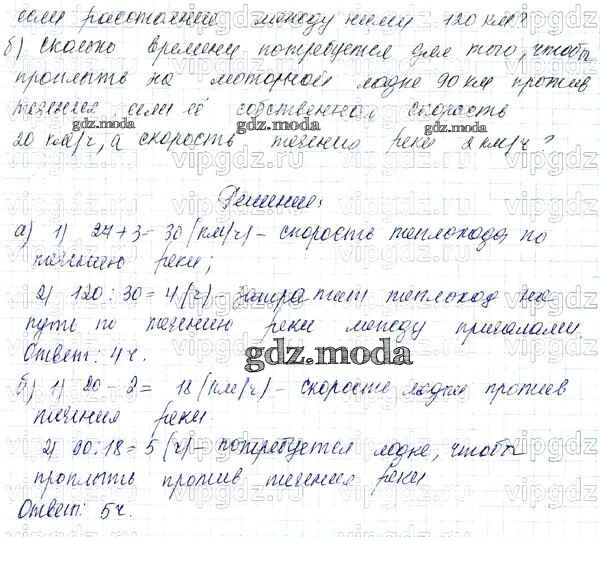 если расстояние между ними 120 км?
б) сколько времени потребуется для того, чтобы
проплыть на моторной лодке 90 км против
течения, если её собственная скорость
20 км/ч, а скорость течения реки 2 км/ч?
Решение:
а) 1) 27+3= 30 (км/ч) – скорость теплохода по
течению реки;
2) 120 : 30 = 4 (ч) – затратит теплоход на
пути по течению реки между причалами.
Ответ: 4 ч.
gdz.moda
б) 1) 20 - 2 = 18 (км/ч) – скорость лодки против
течения реки.
2) 90 : 18 = 5 (ч) – потребуется лодке, чтобы
проплыть против течения реки
Ответ: 5 ч.